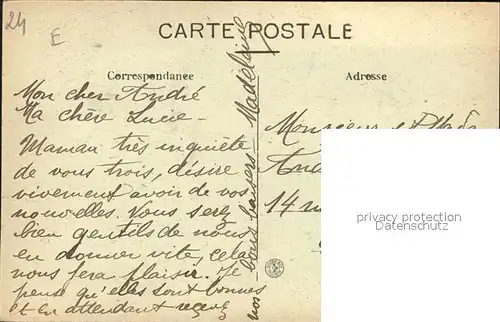 24
E
CARTE POSTALE
Correspondance
Adresse
Mon cher André
Ma chère Lucie -
Maman très inquiète
de vous trois, désire
vivement avoir de vos
nouvelles. Vous serez
bien gentils de nous
en donner vite, cela
nous fera plaisir. Je
pense qu'elles sont bonnes
et en attendant recevez
nos bons baisers - Madeleine
Monsieur et Mada
14
privacy protection
Datenschutz